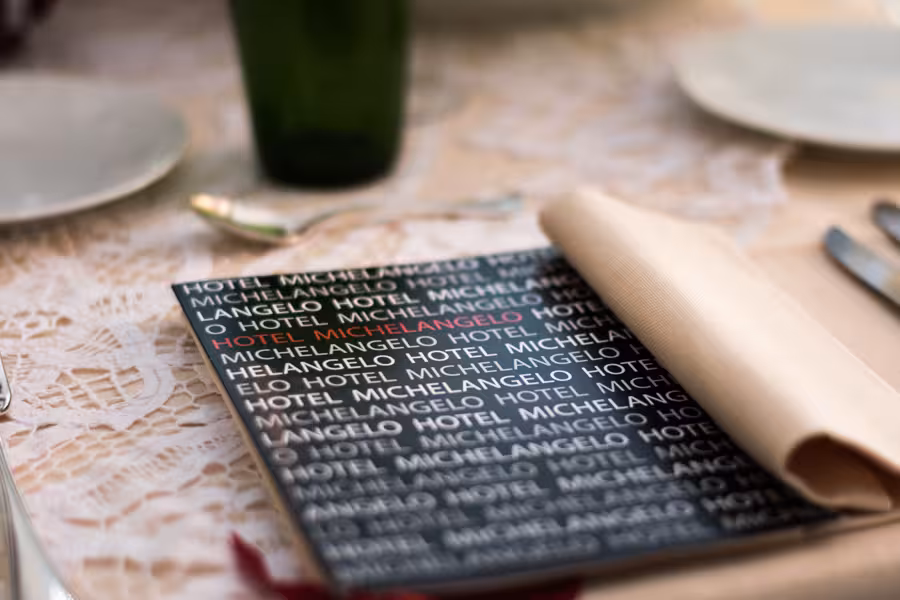 HOTEL MICHELANGELO HOTEL
MICHELANGELO HOTEL MICHELANGELO
LANGELO HOTEL MICHELANGELO
O HOTEL MICHELANGELO HOTEL
HOTEL MICHELANGELO HOTEL
MICHELANGELO HOTEL MICHEL
HELANGELO HOTEL MICHELANGELO
ELO HOTEL MICHELANGELO HOTEL
HOTEL MICHELANGELO HOTEL
MICHELANGELO HOTEL MICHELANG
LANGELO HOTEL MICHELANGELO
O HOTEL MICHELANGELO HOTEL
HOTEL MICHELANGELO HOTEL
MICHELANGELO HOTEL MICHELANGELO
ANGELO HOTEL MICHELANGELO
HOTEL MICHELANGELO HOTEL
HOTEL MICHELANGELO